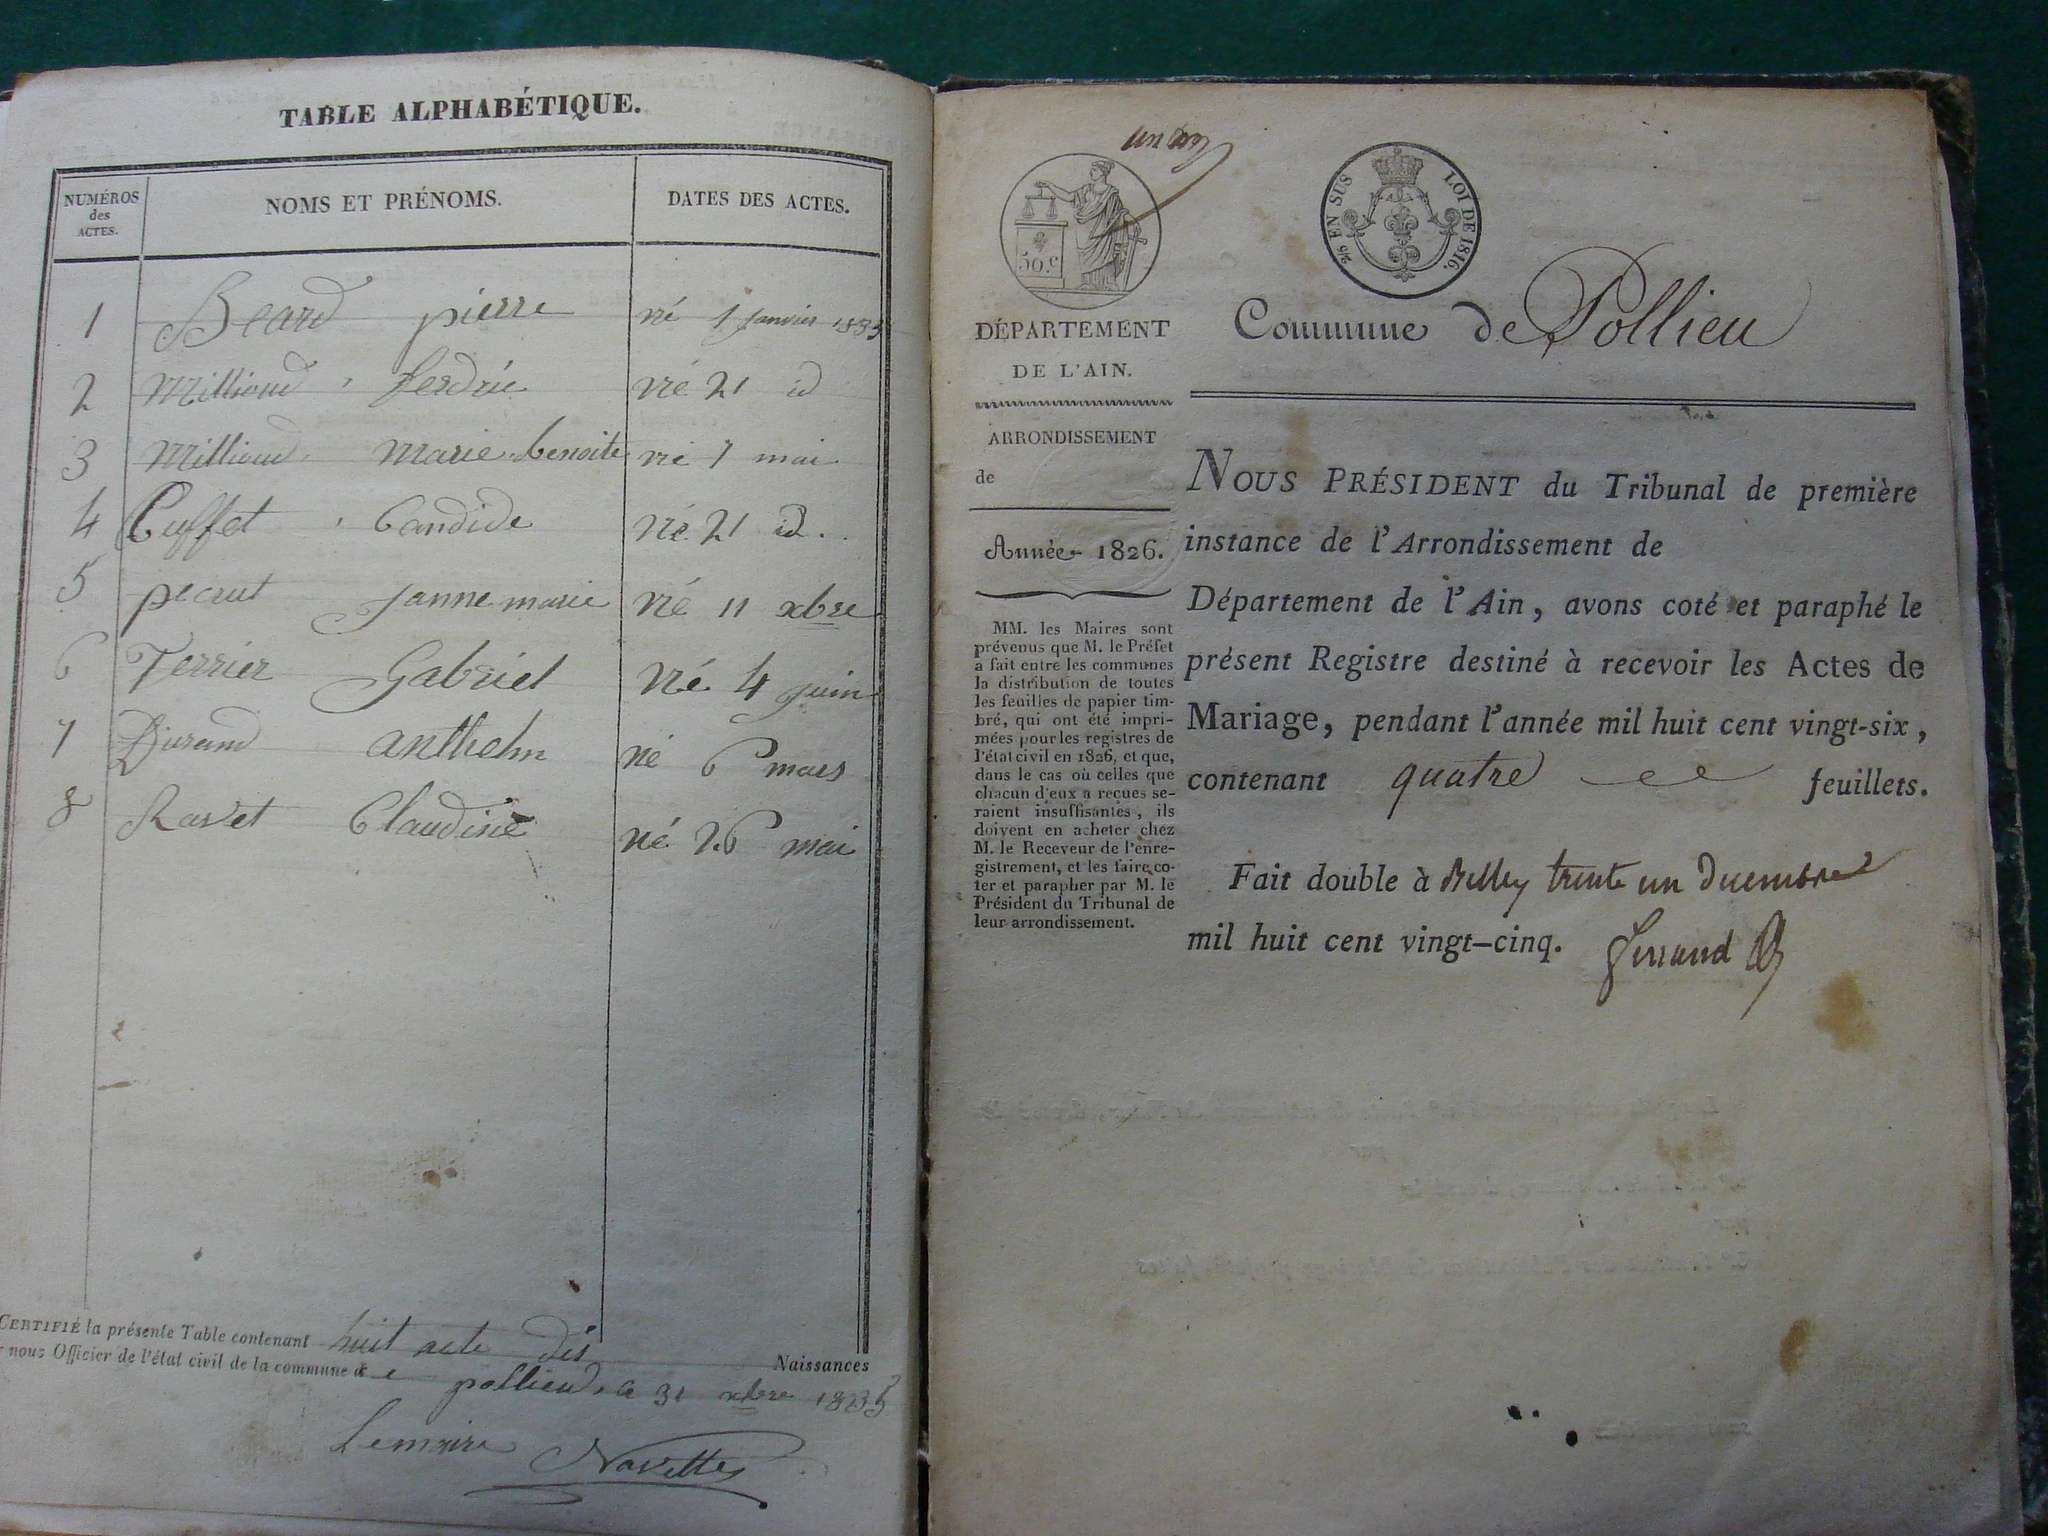 TABLE ALPHABÉTIQUE.
NUMÉROS des ACTES.
NOMS ET PRÉNOMS.
DATES DES ACTES.
1 Beard pierre né 1 janvier 1835
2 Milliond né 21 id
3 Milliond marie benoite né 1 mai
4 Cuffet Candide né 21 id.
5 pecrut janne marie né 11 xbre
6 Terrier Gabriel né 4 juin
7 Durand anthelm né 6 mars
8 Ravet Claudine né 26 mai
CERTIFIÉ la présente Table contenant huit acte dis Naissances
nous Officier de l'état civil de la commune de pollieu, ce 31 xbre 1835
Lemaire
Navette
un
50.c
2/6 EN SUS LOI DE 1816.
DÉPARTEMENT
DE L'AIN.
ARRONDISSEMENT
de
Année 1826.
MM. les Maires sont
prévenus que M. le Préfet
a fait entre les communes
la distribution de toutes
les feuilles de papier tim-
bré, qui ont été impri-
mées pour les registres de
l'état civil en 1826, et que,
dans le cas où celles que
chacun d'eux a reçues se-
raient insuffisantes, ils
doivent en acheter chez
M. le Receveur de l'enre-
gistrement, et les faire co-
ter et parapher par M. le
Président du Tribunal de
leur arrondissement.
Commune de Pollieu
NOUS PRÉSIDENT du Tribunal de première
instance de l'Arrondissement de
Département de l'Ain, avons coté et paraphé le
présent Registre destiné à recevoir les Actes de
Mariage, pendant l'année mil huit cent vingt-six,
contenant quatre feuillets.
Fait double à Belley trente un Decembre
mil huit cent vingt-cinq. Ferrand